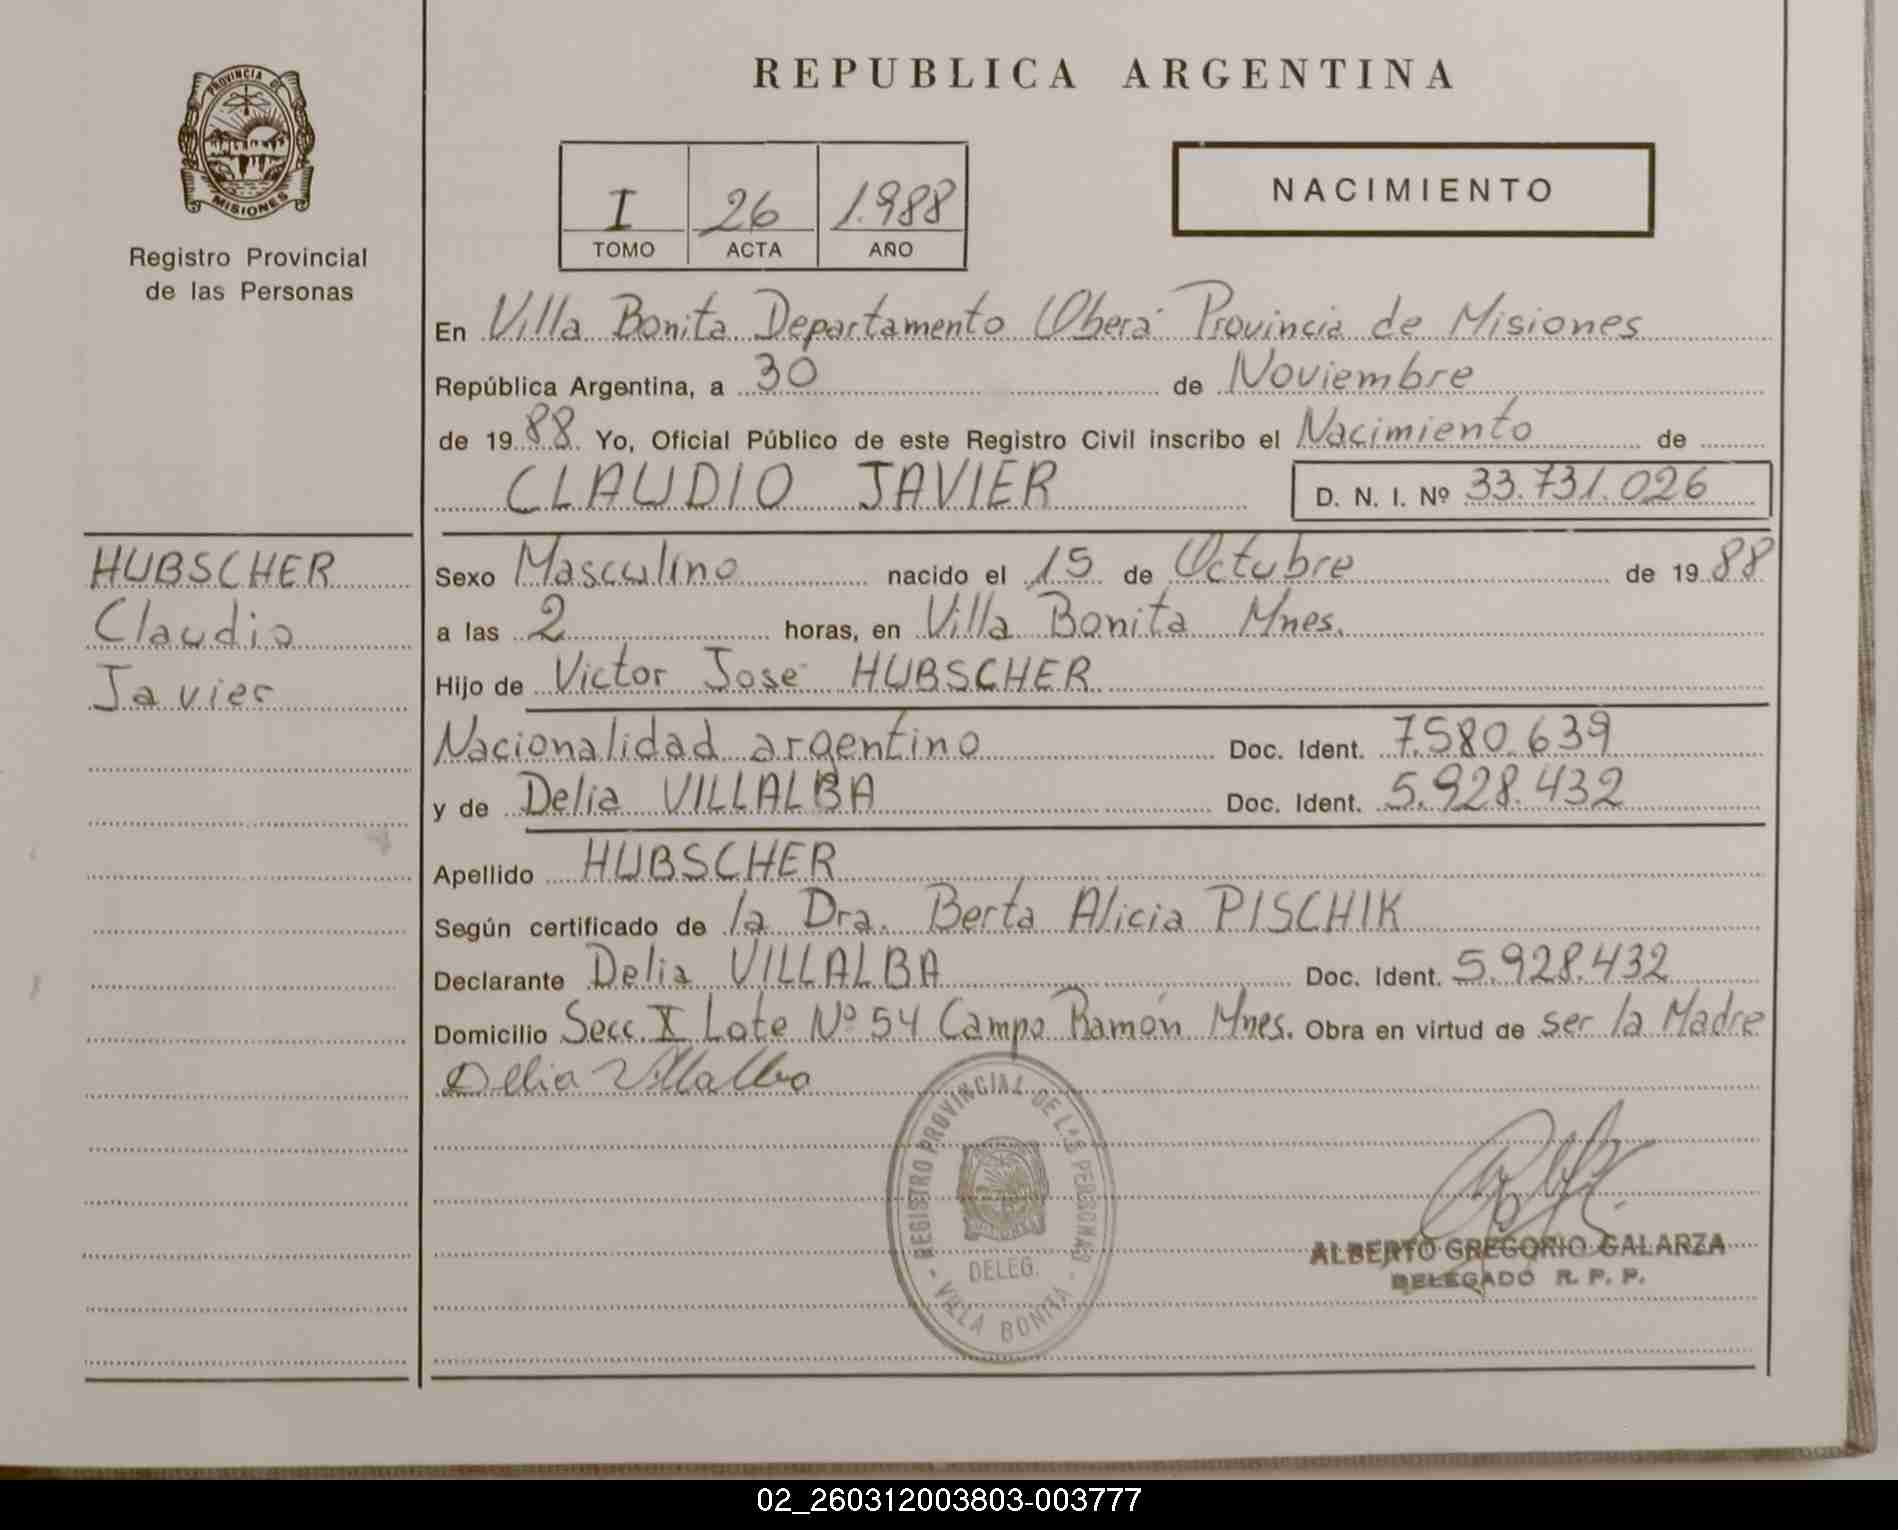 PROVINCIA DE
MISIONES
Registro Provincial
de las Personas
REPUBLICA ARGENTINA
I 26 1.988
TOMO ACTA AÑO
NACIMIENTO
En Villa Bonita Departamento Oberá Provincia de Misiones
República Argentina, a 30 de Noviembre
de 1988 Yo, Oficial Público de este Registro Civil inscribo el Nacimiento de
CLAUDIO JAVIER D. N. I. Nº 33.731.026
HUBSCHER
Claudio
Javier
Sexo Masculino nacido el 15 de Octubre de 1988
a las 2 horas, en Villa Bonita Mnes.
Hijo de Victor José HUBSCHER
Nacionalidad argentino Doc. Ident. 7.580.639
y de Delia VILLALBA Doc. Ident. 5.928.432
Apellido HUBSCHER
Según certificado de la Dra. Berta Alicia PISCHIK
Declarante Delia VILLALBA Doc. Ident. 5.928.432
Domicilio Secc. X Lote Nº 54 Campo Ramón Mnes. Obra en virtud de ser la Madre
Delia Villalba
REGISTRO PROVINCIAL DE LAS PERSONAS
DELEG.
VILLA BONITA
ALBERTO GREGORIO GALARZA
DELEGADO R. P. P.
02_260312003803-003777